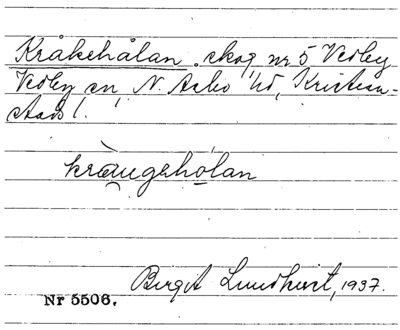 Kråkehålan skog nr 5 Vedby
Vedby sn N. Åsbo hd, Kristian-
stads l.
kräugehålan
Birgit Lundkvist, 1937.
Nr 5506.